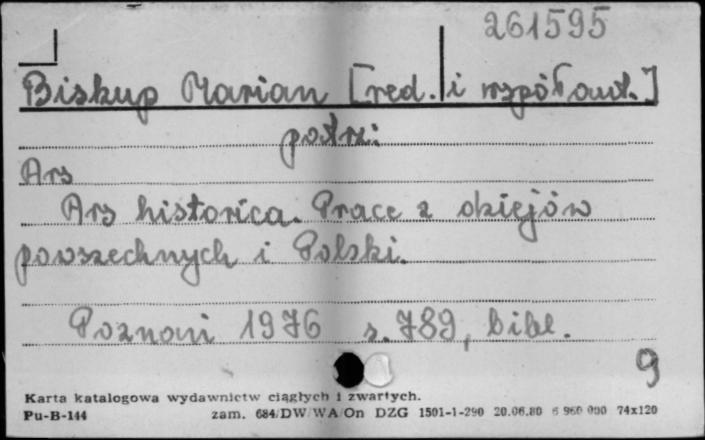 261595
Biskup Marian [red. i współaut.]
patrz:
Ars
Ars historica. Prace z dziejów
powszechnych i Polski.
Poznań 1976 s. 789, bibl.
9
Karta katalogowa wydawnictw ciągłych i zwartych.
Pu-B-144 zam. 684/DW/WA/On DZG 1501-1-290 20.06.80 6 960 000 74x120